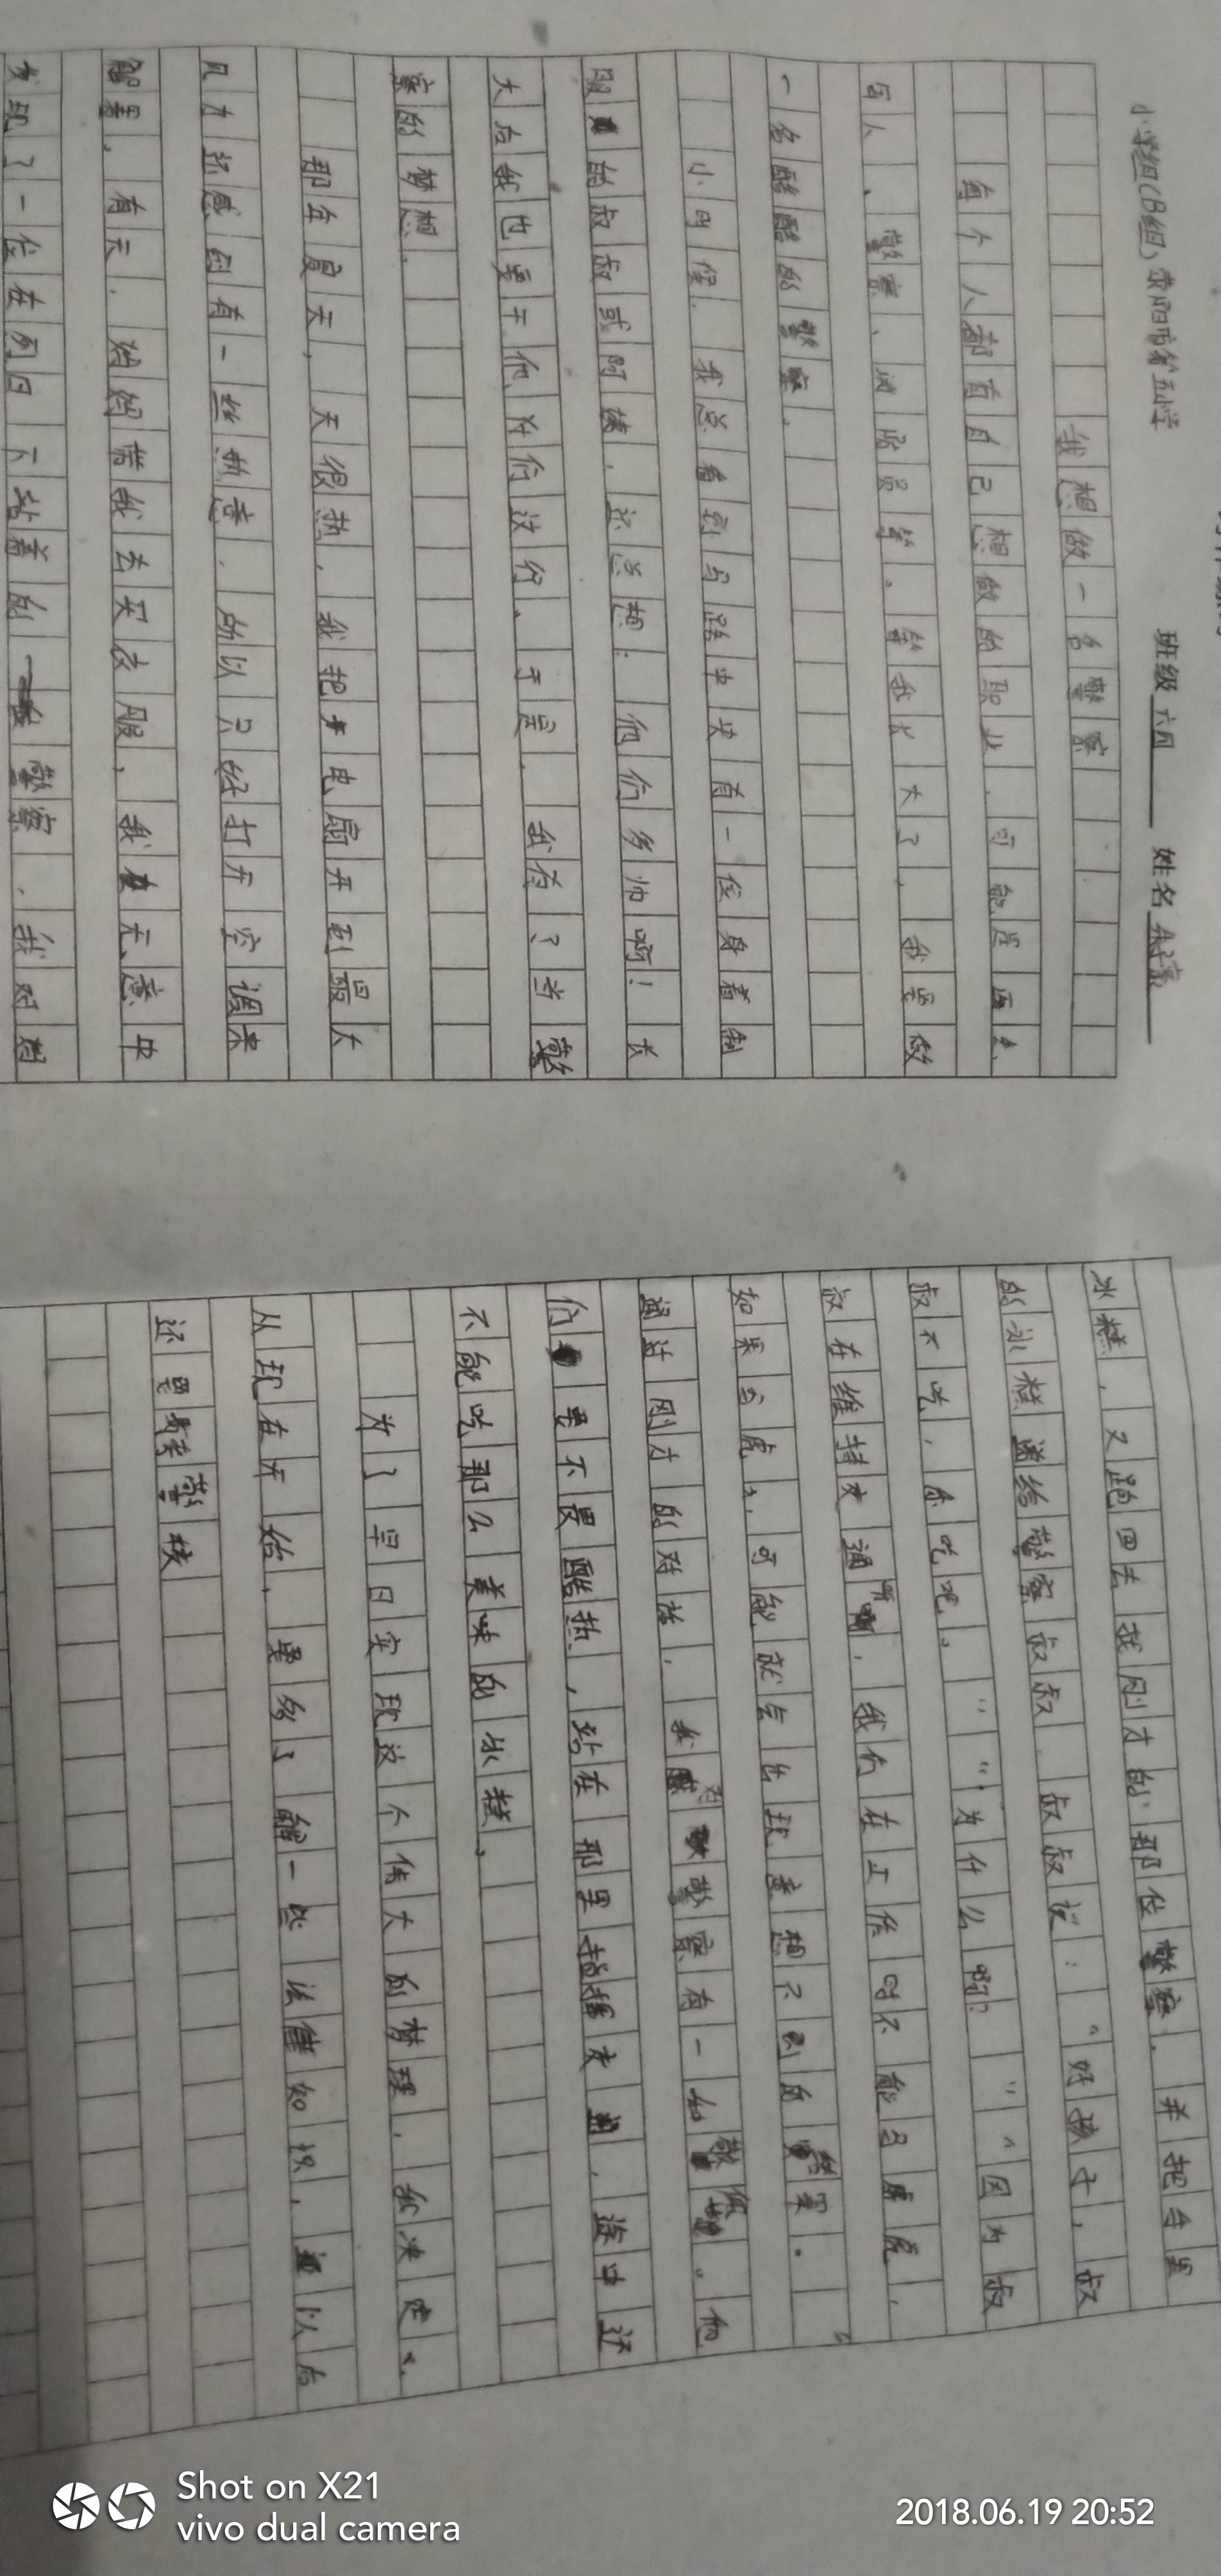 小学组(B组) 荥阳市第五小学
班级 六四 姓名
我想做一名警察
每个人都有自己想做的职业,可能是画
人、警察、消防员等。等我长大了,我要做
一名酷酷的警察。
小时候,我总看到马路中央有一位身着制
服的叔叔或阿姨,还总想:他们多帅啊!长
大后我也要于他们这行。于是,我有了当警
察的梦想。
那年夏天,天很热,我把电扇开到最大
风力还感到有一丝热意,所以只好打开空调来
解暑,有天,妈妈带我去买衣服,我无意中
发现了一位在烈日下站着的警察,我对
冰糕,又跑回去找刚才的那位警察,并把手里
的冰糕递给警察叔叔,叔叔说:“好孩子,叔
叔不吃,你吃吧。”“为什么啊?”“因为叔
叔在维持交通啊,我们在工作时不能马虎,
如果马虎了,可能就会出现意想不到的结果。”
通过刚才的对话,我对警察有一如敬佩。他
们要不畏酷热,站在那里指挥交通,途中还
不能吃那么美味的冰糕。
为了早日实现这个伟大的梦想,我决定了,
从现在开始,要多了解一些法律知识,以后
还要考警校
Shot on X21
vivo dual camera
2018.06.19 20:52